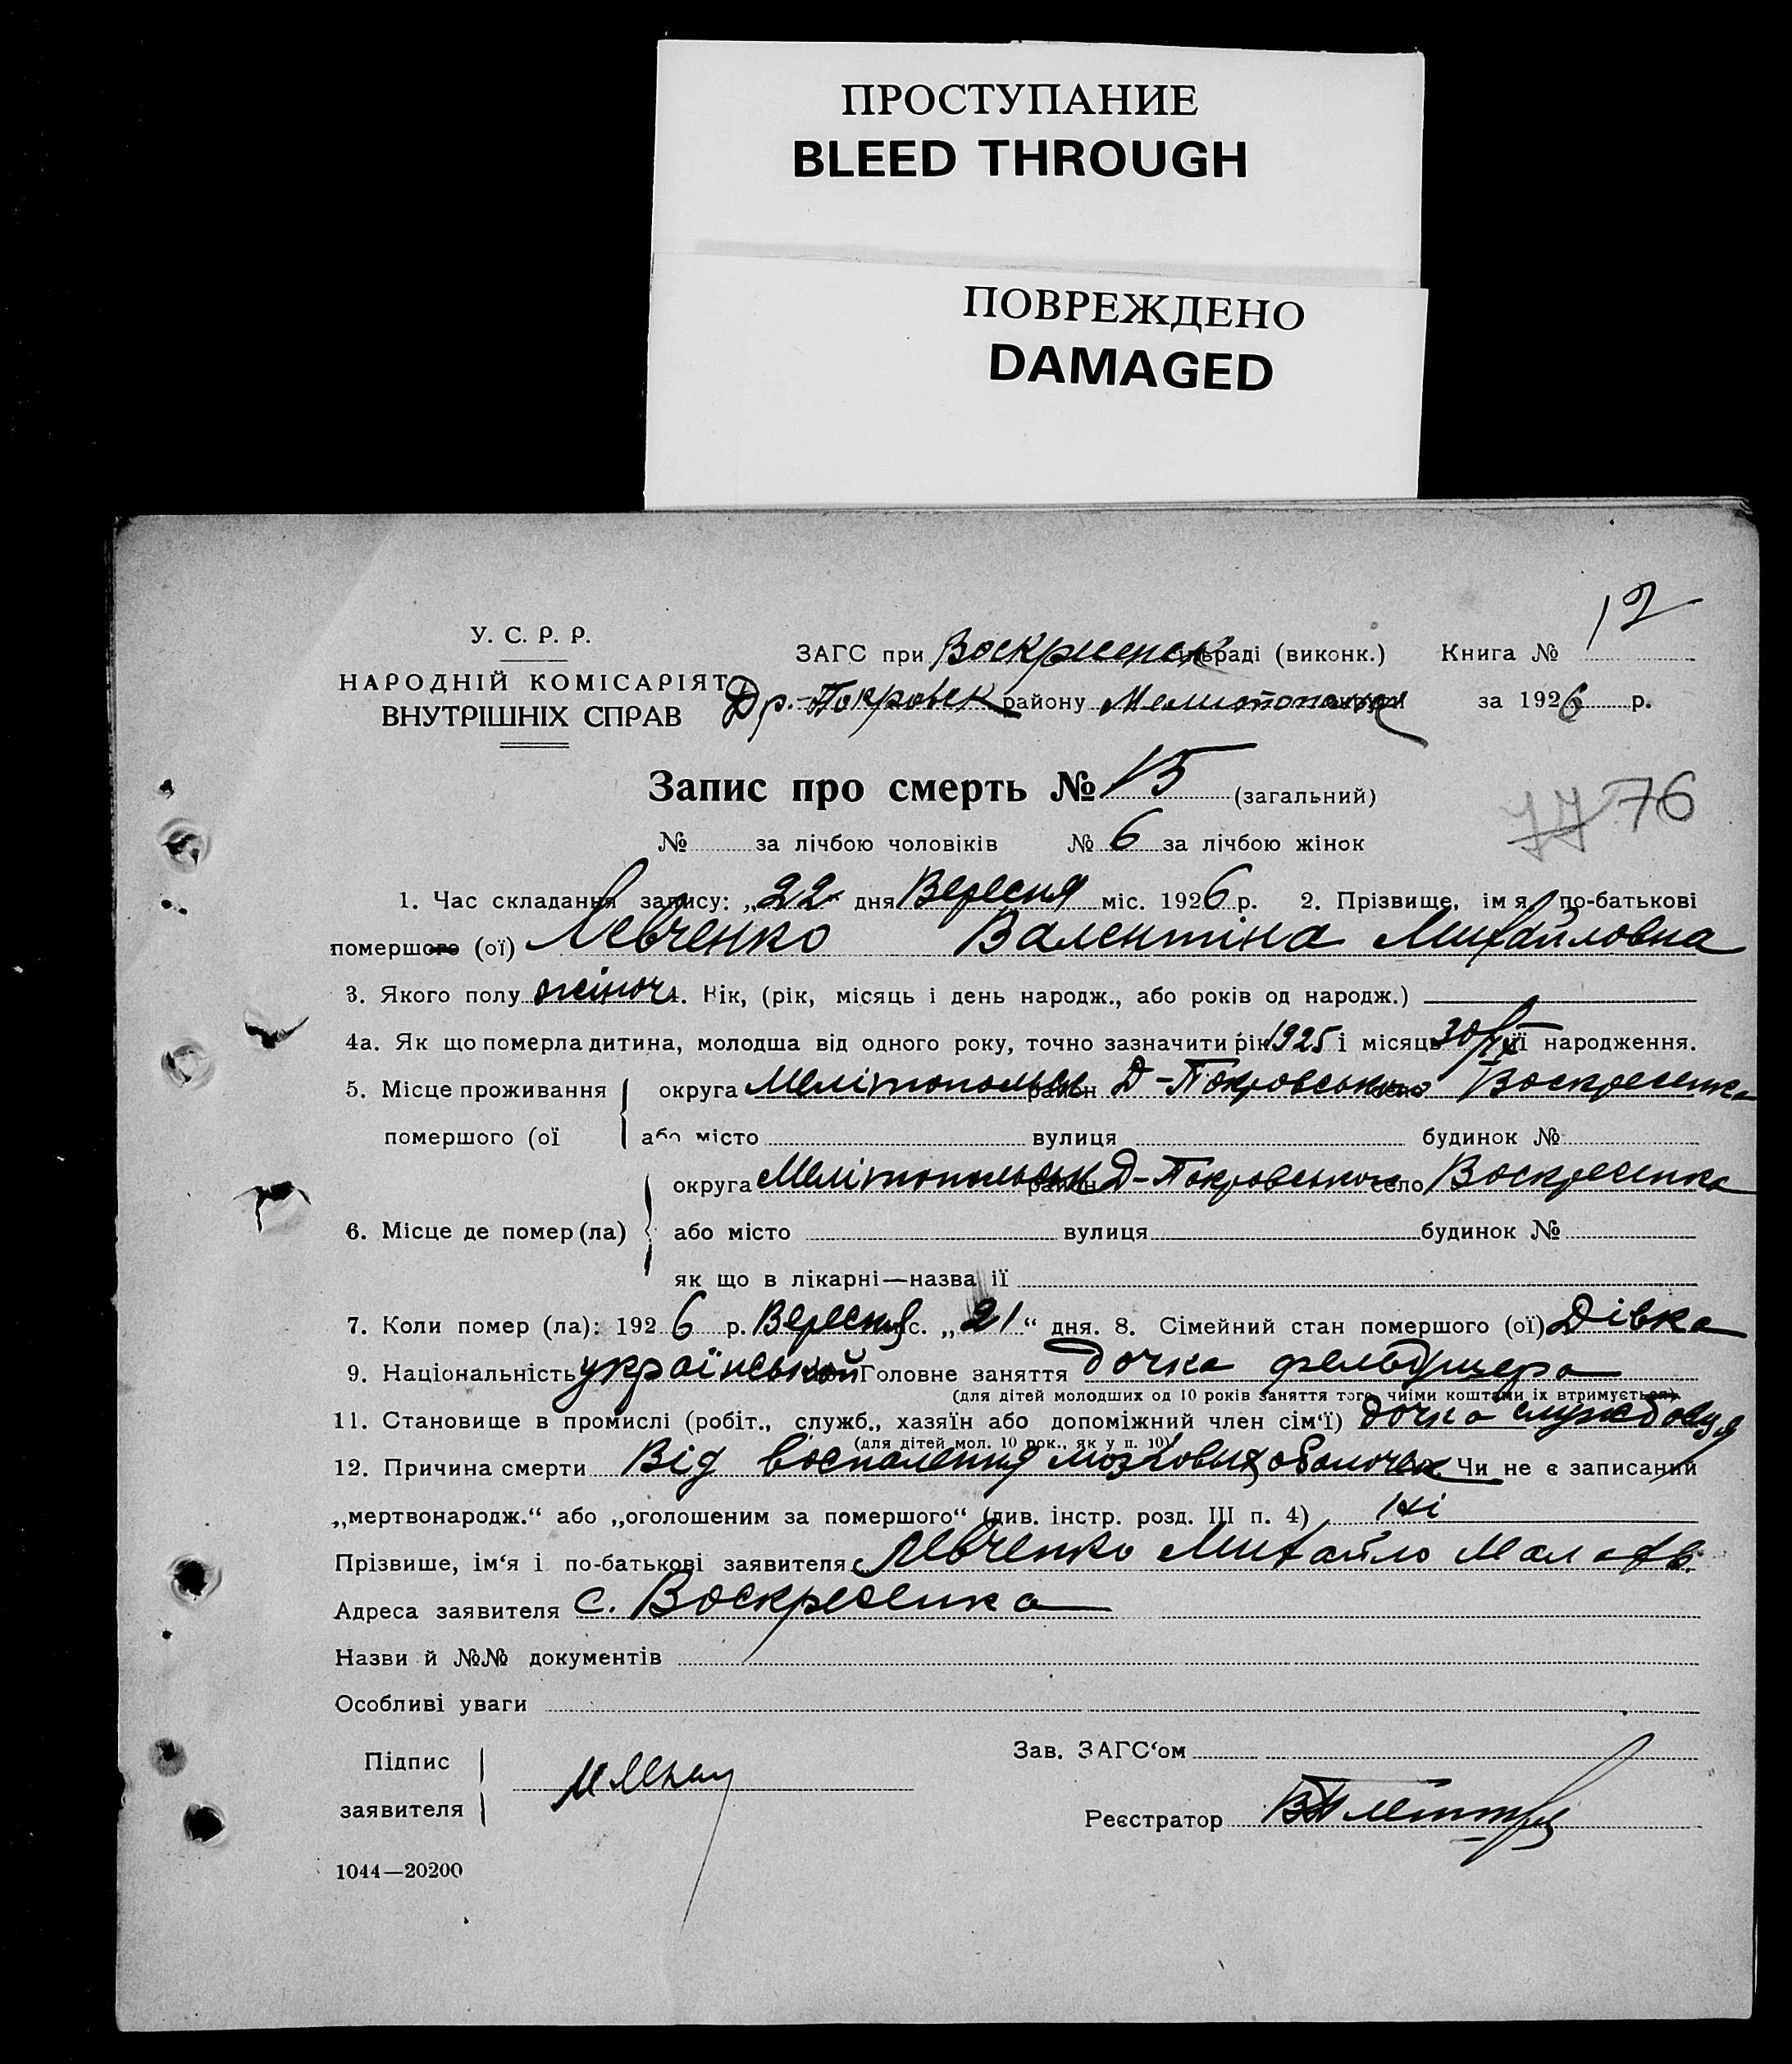 ПРОСТУПАНИЕ
BLEED THROUGH
ПОВРЕЖДЕНО
DAMAGED
У. С. Р. Р.
НАРОДНІЙ КОМІСАРІЯТ
ВНУТРІШНІХ СПРАВ
12
ЗАГС при Воскресенск сільраді (виконк.) Книга №
Др.-Покровск району Мелитопольск округи за 1926 р.
Запис про смерть № 15 (загальний)
77 76
№ за лічбою чоловіків № 6 за лічбою жінок
1. Час складання запису: „22 дня Вересня міс. 1926 р. 2. Прізвище, імя, по-батькові
помершого (ої) Левченко Валентіна Михайловна
3. Якого полу жіноч 4. Вік, (рік, місяць і день народж., або років од народж.)
4а. Як що померла дитина, молодша від одного року, точно зазначити рік 1925 і місяць 30/ її народження.
5. Місце проживання округа Мелітопольськ район Д-Покровського село Воскресенка
помершого (ої або місто вулиця будинок №
округа Мелітопольськ район Д-Покровського село Воскресенка
6. Місце де помер (ла) або місто вулиця будинок №
як що в лікарні—назва її
7. Коли помер (ла): 1926 р. Вересня міс. „21“ дня. 8. Сімейний стан помершого (ої) Дівка
9. Національність українській Головне заняття дочка фельдшера
(для дітей молодших од 10 років заняття того, чиїми коштами їх втримується).
11. Становище в промислі (робіт., служб., хазяїн або допоміжний член сім‘ї) дочка службовця
(для дітей мол. 10 рок., як у п. 10)
12. Причина смерти Від воспаления мозковых оболочек. Чи не є записаний
„мертвонародж.“ або „оголошеним за помершого“ (див. інстр. розд. III п. 4) ні
Прізвише, ім‘я і по-батькові заявителя Левченко Михайло
Адреса заявителя с. Воскресенка
Назви й №№ документів
Особливі уваги
Підпис
заявителя
Зав. ЗАГС‘ом
Реєстратор
1044—20200